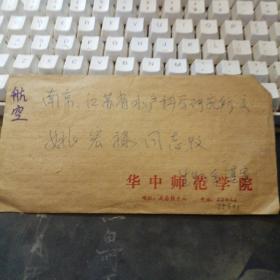 航空
南京、江苏省水产科学研究所交
姚宏禄同志收
华中师范学院